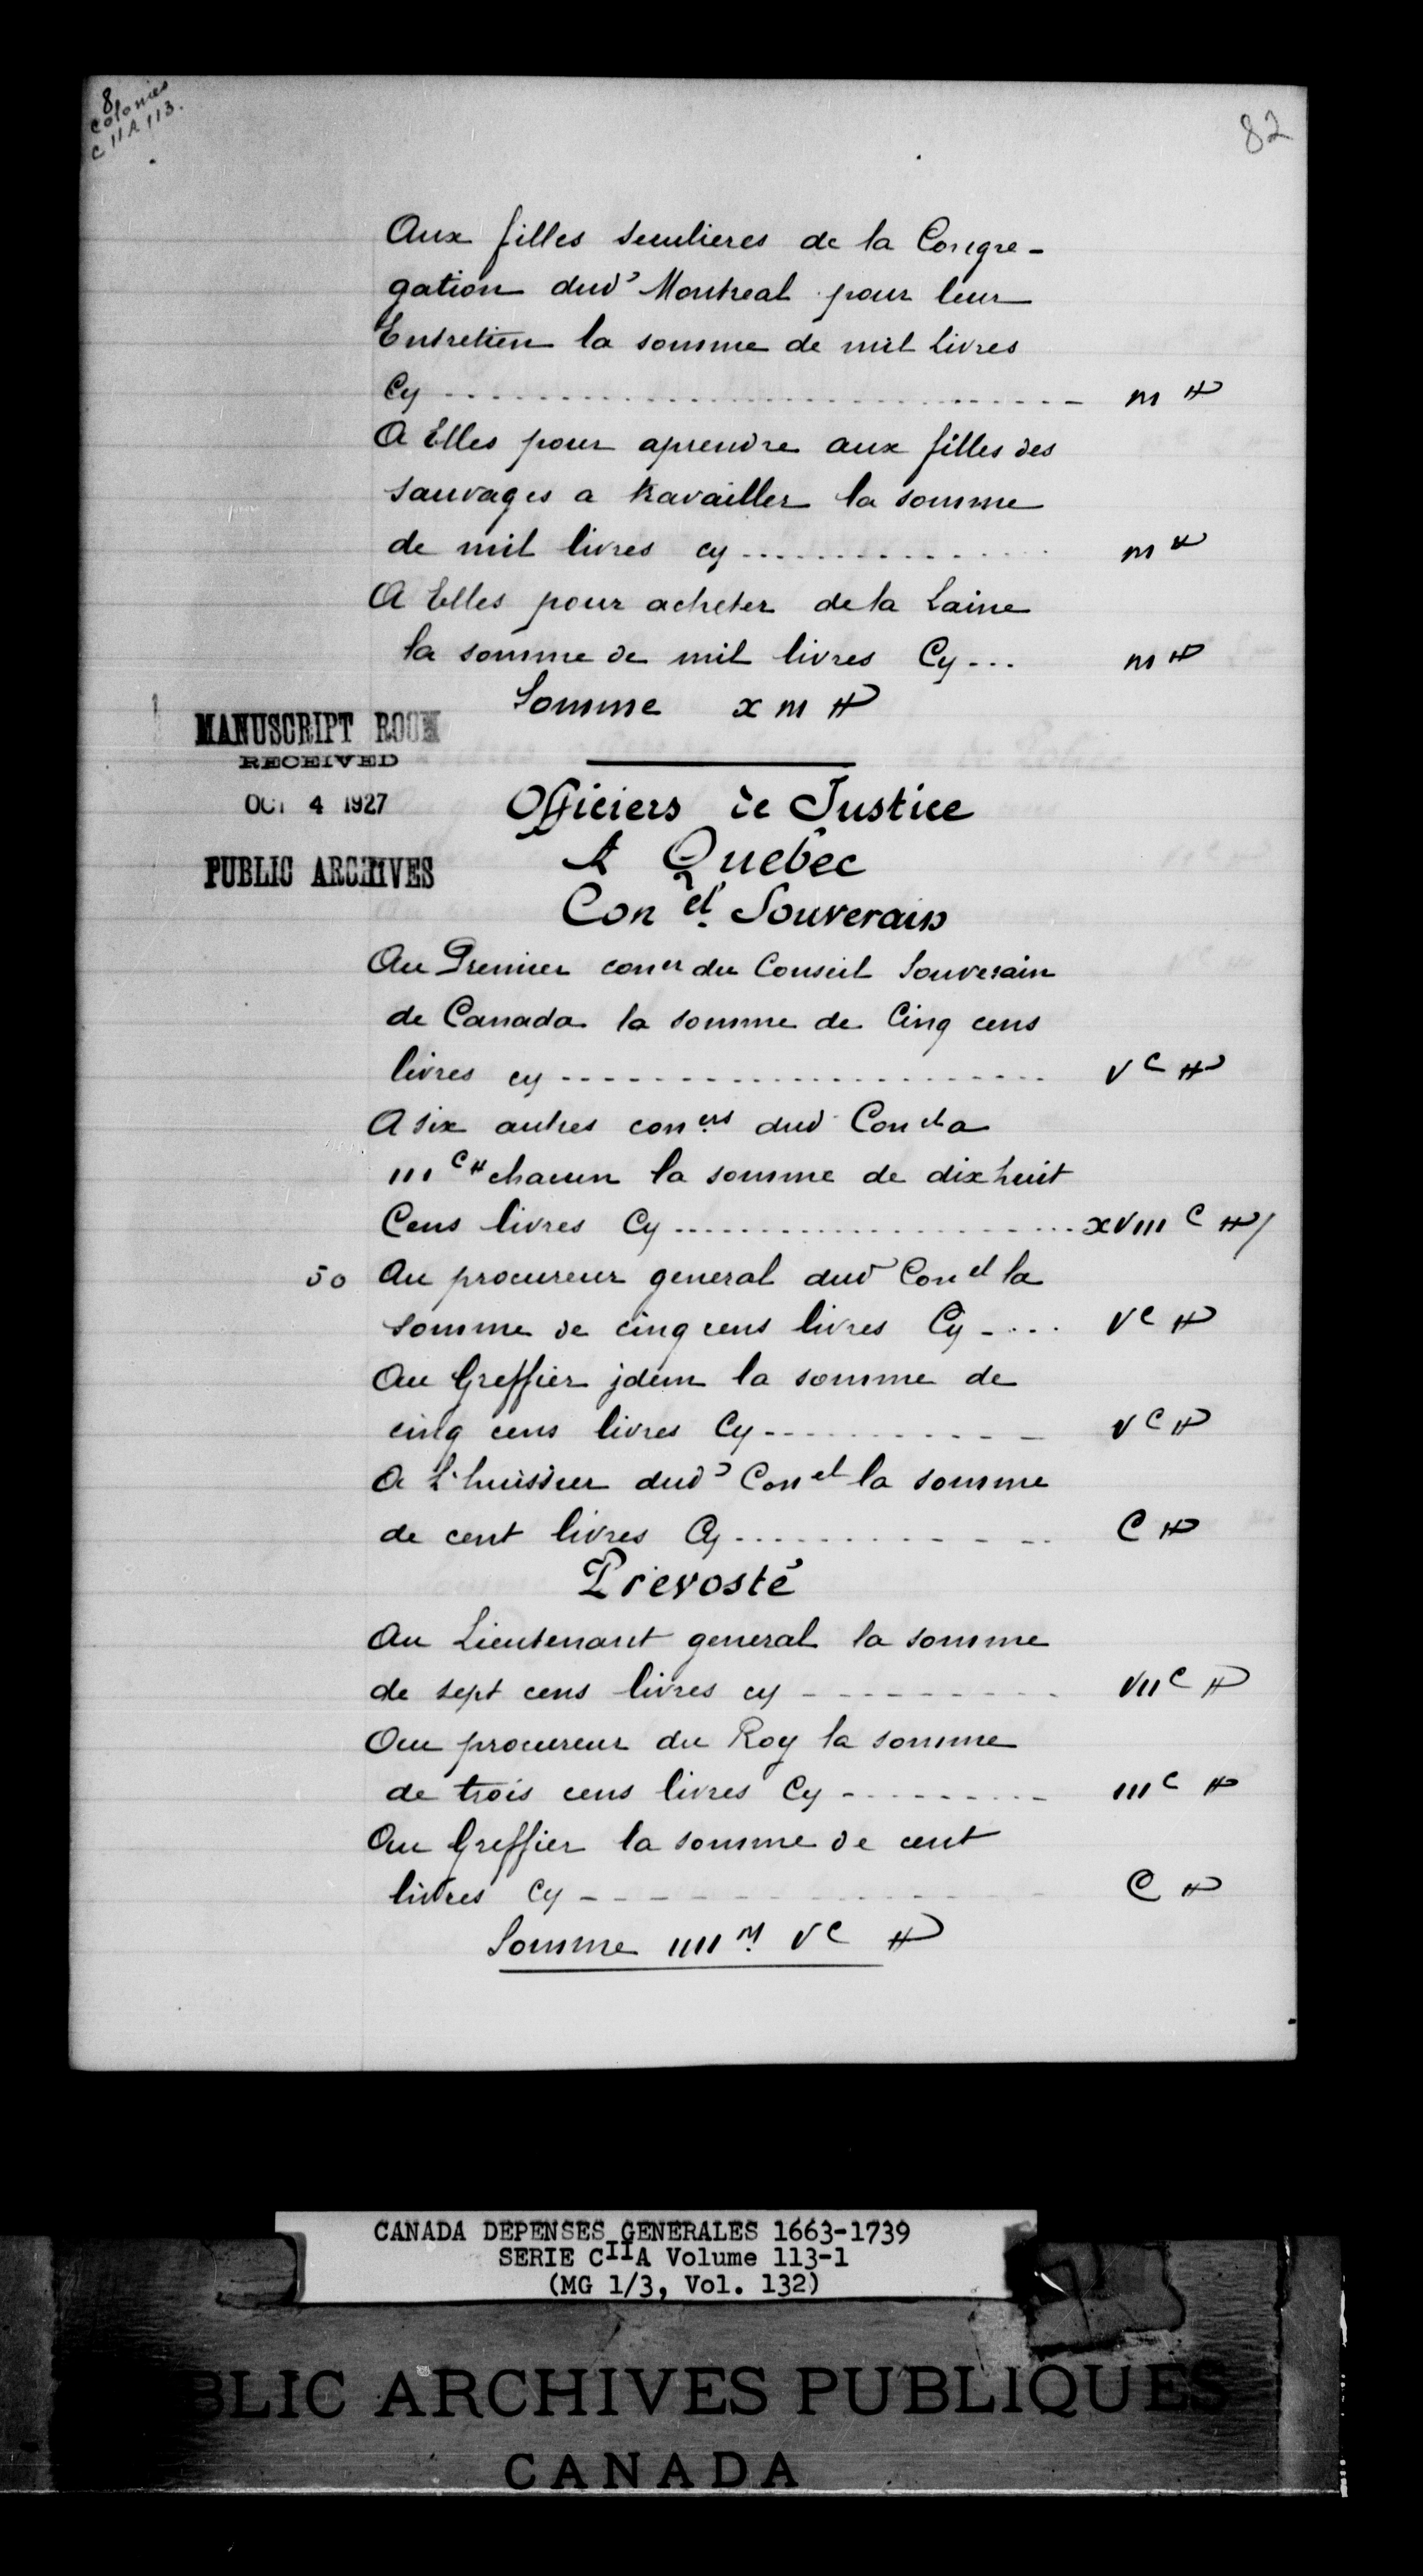 8
Colonies
C 11A 113.
82
Aux filles seculieres de la Congre-
gation dud' Montreal pour leur
Entretien la somme de mil livres
Cy ........................ m ₶
A Elles pour aprendre aux filles des
sauvages a travailler la somme
de mil livres cy ............ m ₶
A Elles pour acheter de la Laine
la somme de mil livres Cy ... m ₶
Somme x m ₶
MANUSCRIPT ROOM
RECEIVED
OCT 4 1927
PUBLIC ARCHIVES
Officiers de Justice
A Quebec
Con el. Souverain
Au Premier coner du Conseil Souverain
de Canada la somme de Cinq cens
livres cy .................... V C ₶
A six autres coners dud Conel a
III C ₶ chacun la somme de dix huit
Cens livres Cy ................ XVIII C ₶
50 Au procureur general dud Conel la
somme de cinq cens livres Cy .... V C ₶
Au Greffier jdem la somme de
cinq cens livres Cy ............ V C ₶
A L'huissier dud' Conel la somme
de cent livres Cy .............. C ₶
Prevosté
Au Lieutenant general la somme
de sept cens livres cy .......... VII C ₶
Au procureur du Roy la somme
de trois cens livres Cy .......... III C ₶
Au Greffier la somme de cent
livres Cy ...................... C ₶
Somme IIII M V C ₶
CANADA DEPENSES GENERALES 1663-1739
SERIE CIIA Volume 113-1
(MG 1/3, Vol. 132)
BLIC ARCHIVES PUBLIQUES
CANADA